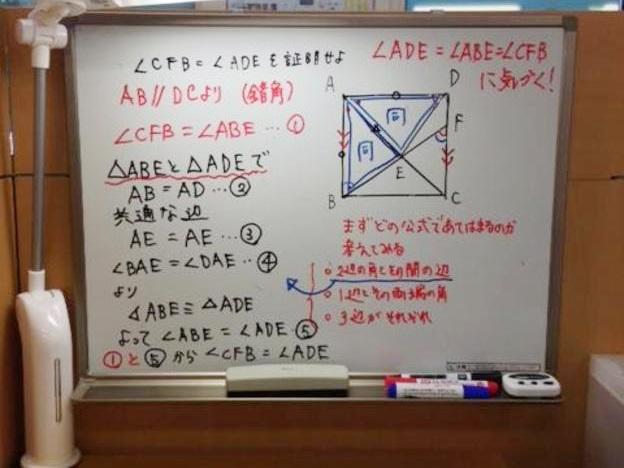 ∠CFB = ∠ADE を証明せよ
AB // DCより (錯角)
∠CFB = ∠ABE … ①
△ABEと△ADEで
AB = AD … ②
共通な辺
AE = AE … ③
∠BAE = ∠DAE … ④
より
△ABE ≡ △ADE
よって ∠ABE = ∠ADE ⑤
①と⑤から ∠CFB = ∠ADE
∠ADE = ∠ABE = ∠CFB
に気づく!
A
D
同
F
同
E
B
C
まずどの公式であてはまるのか
考えてみる
○ 2辺の角とその間の辺
○ 1辺とその両端の角
○ 3辺がそれぞれ